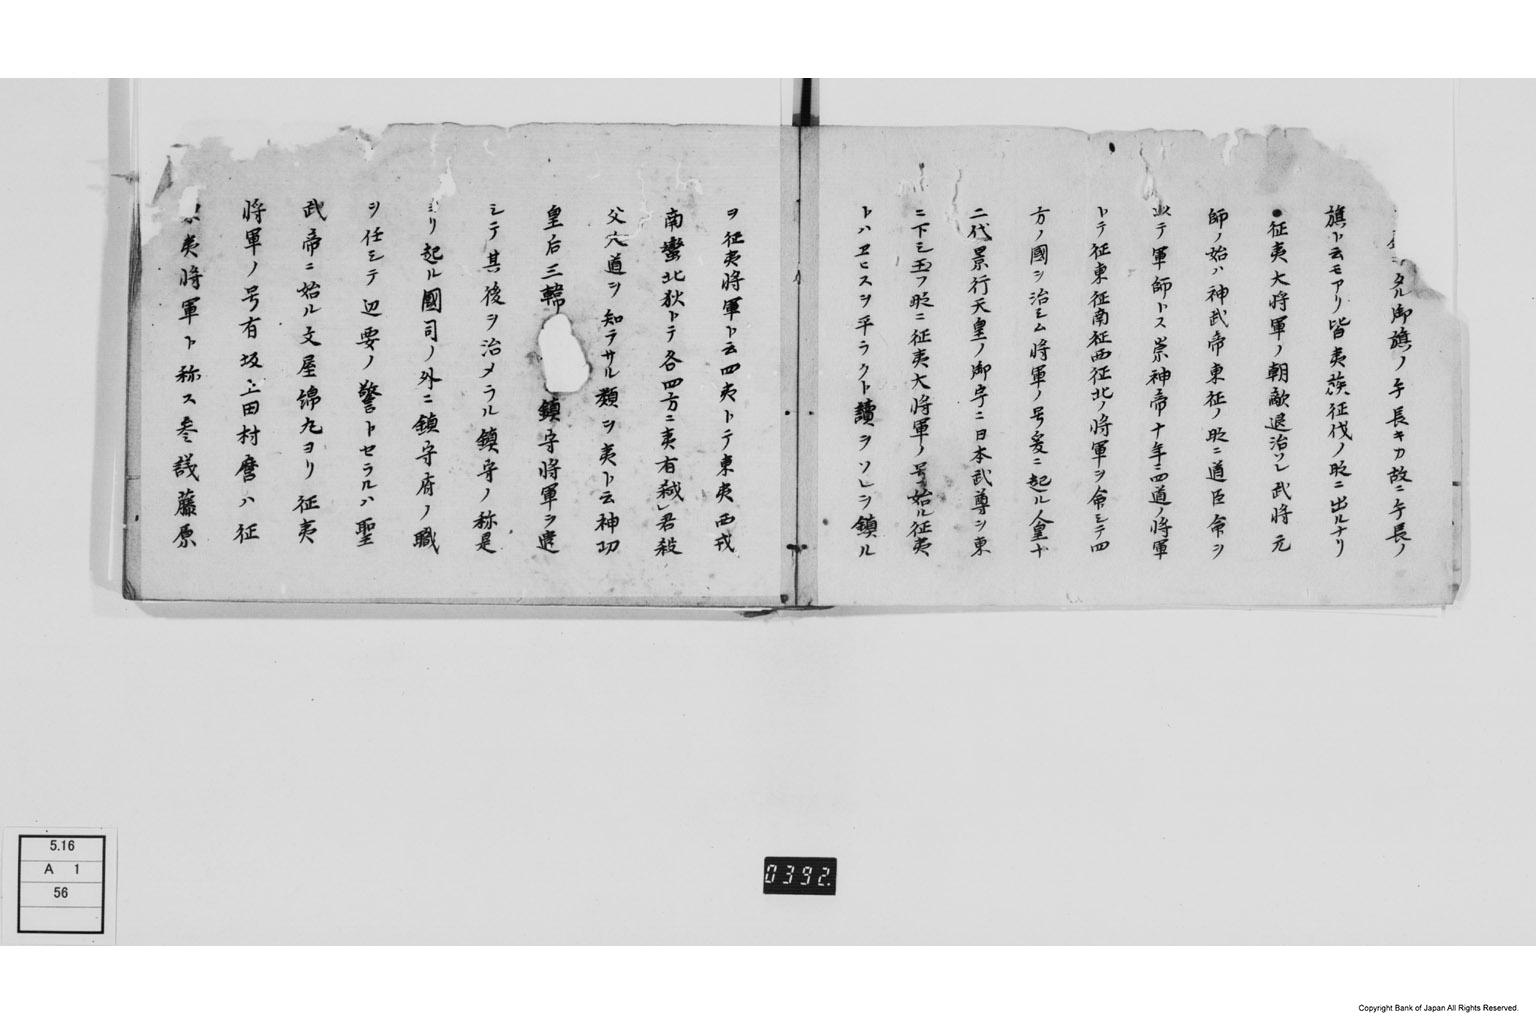 タル御旗ノ手長キカ故ニ手長ノ
旗ト云モアリ皆夷蔟征伐ノ時ニ出ルナリ
●征夷大將軍ノ朝敵退治ソレ武將元
師ノ始ハ神武帝東征ノ時ニ道臣命ヲ
以テ軍師トス崇神帝十年ニ四道ノ將軍
トテ征東征南征西征北ノ將軍ヲ命シテ四
方ノ國ヲ治シム將軍ノ号爰ニ起ル人皇十
二代景行天皇ノ御宇ニ日本武尊ヲ東
ニ下シ玉フ時ニ征夷大將軍ノ号始ル征夷
トハヱヒスヲ平ラクト讀ヲソレヲ鎮ル
ヲ征夷將軍ト云四夷トテ東夷西戎
南蠻北狄トテ各四方ニ夷有弑君殺
父穴道ヲ知ラサル類ヲ夷ト云神功
皇后三韓 鎮守將軍ヲ遣
シテ其後ヲ治メラル鎮守ノ称是
ヨリ起ル國司ノ外ニ鎮守府ノ職
ヲ任シテ辺要ノ警トセラルハ聖
武帝ニ始ル文屋綿丸ヨリ征夷
將軍ノ号有坂上田村麿ハ征
夷將軍ト称ス参議藤原
5.16
A 1
56
0392.
Copyright Bank of Japan All Rights Reserved.